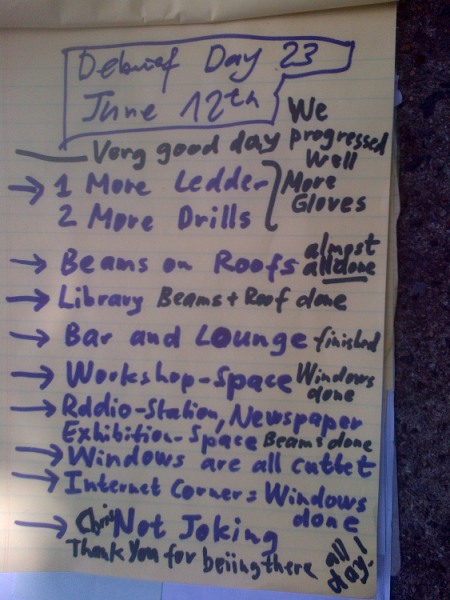 Debrief Day 23
June 12th
Very good day
We
progressed
well
→ 1 More Ledder
2 More Drills
More
Gloves
→ Beams on Roofs almost
all done
→ Library Beams + Roof done
→ Bar and Lounge finished
→ Workshop-Space Windows
done
→ Rddio-Station, Newspaper
Exhibition-Space Beams done
→ Windows are all cuttet
→ Internet Corner: Windows
done
→ Chris Not Joking
Thank You for beiing there all
day!